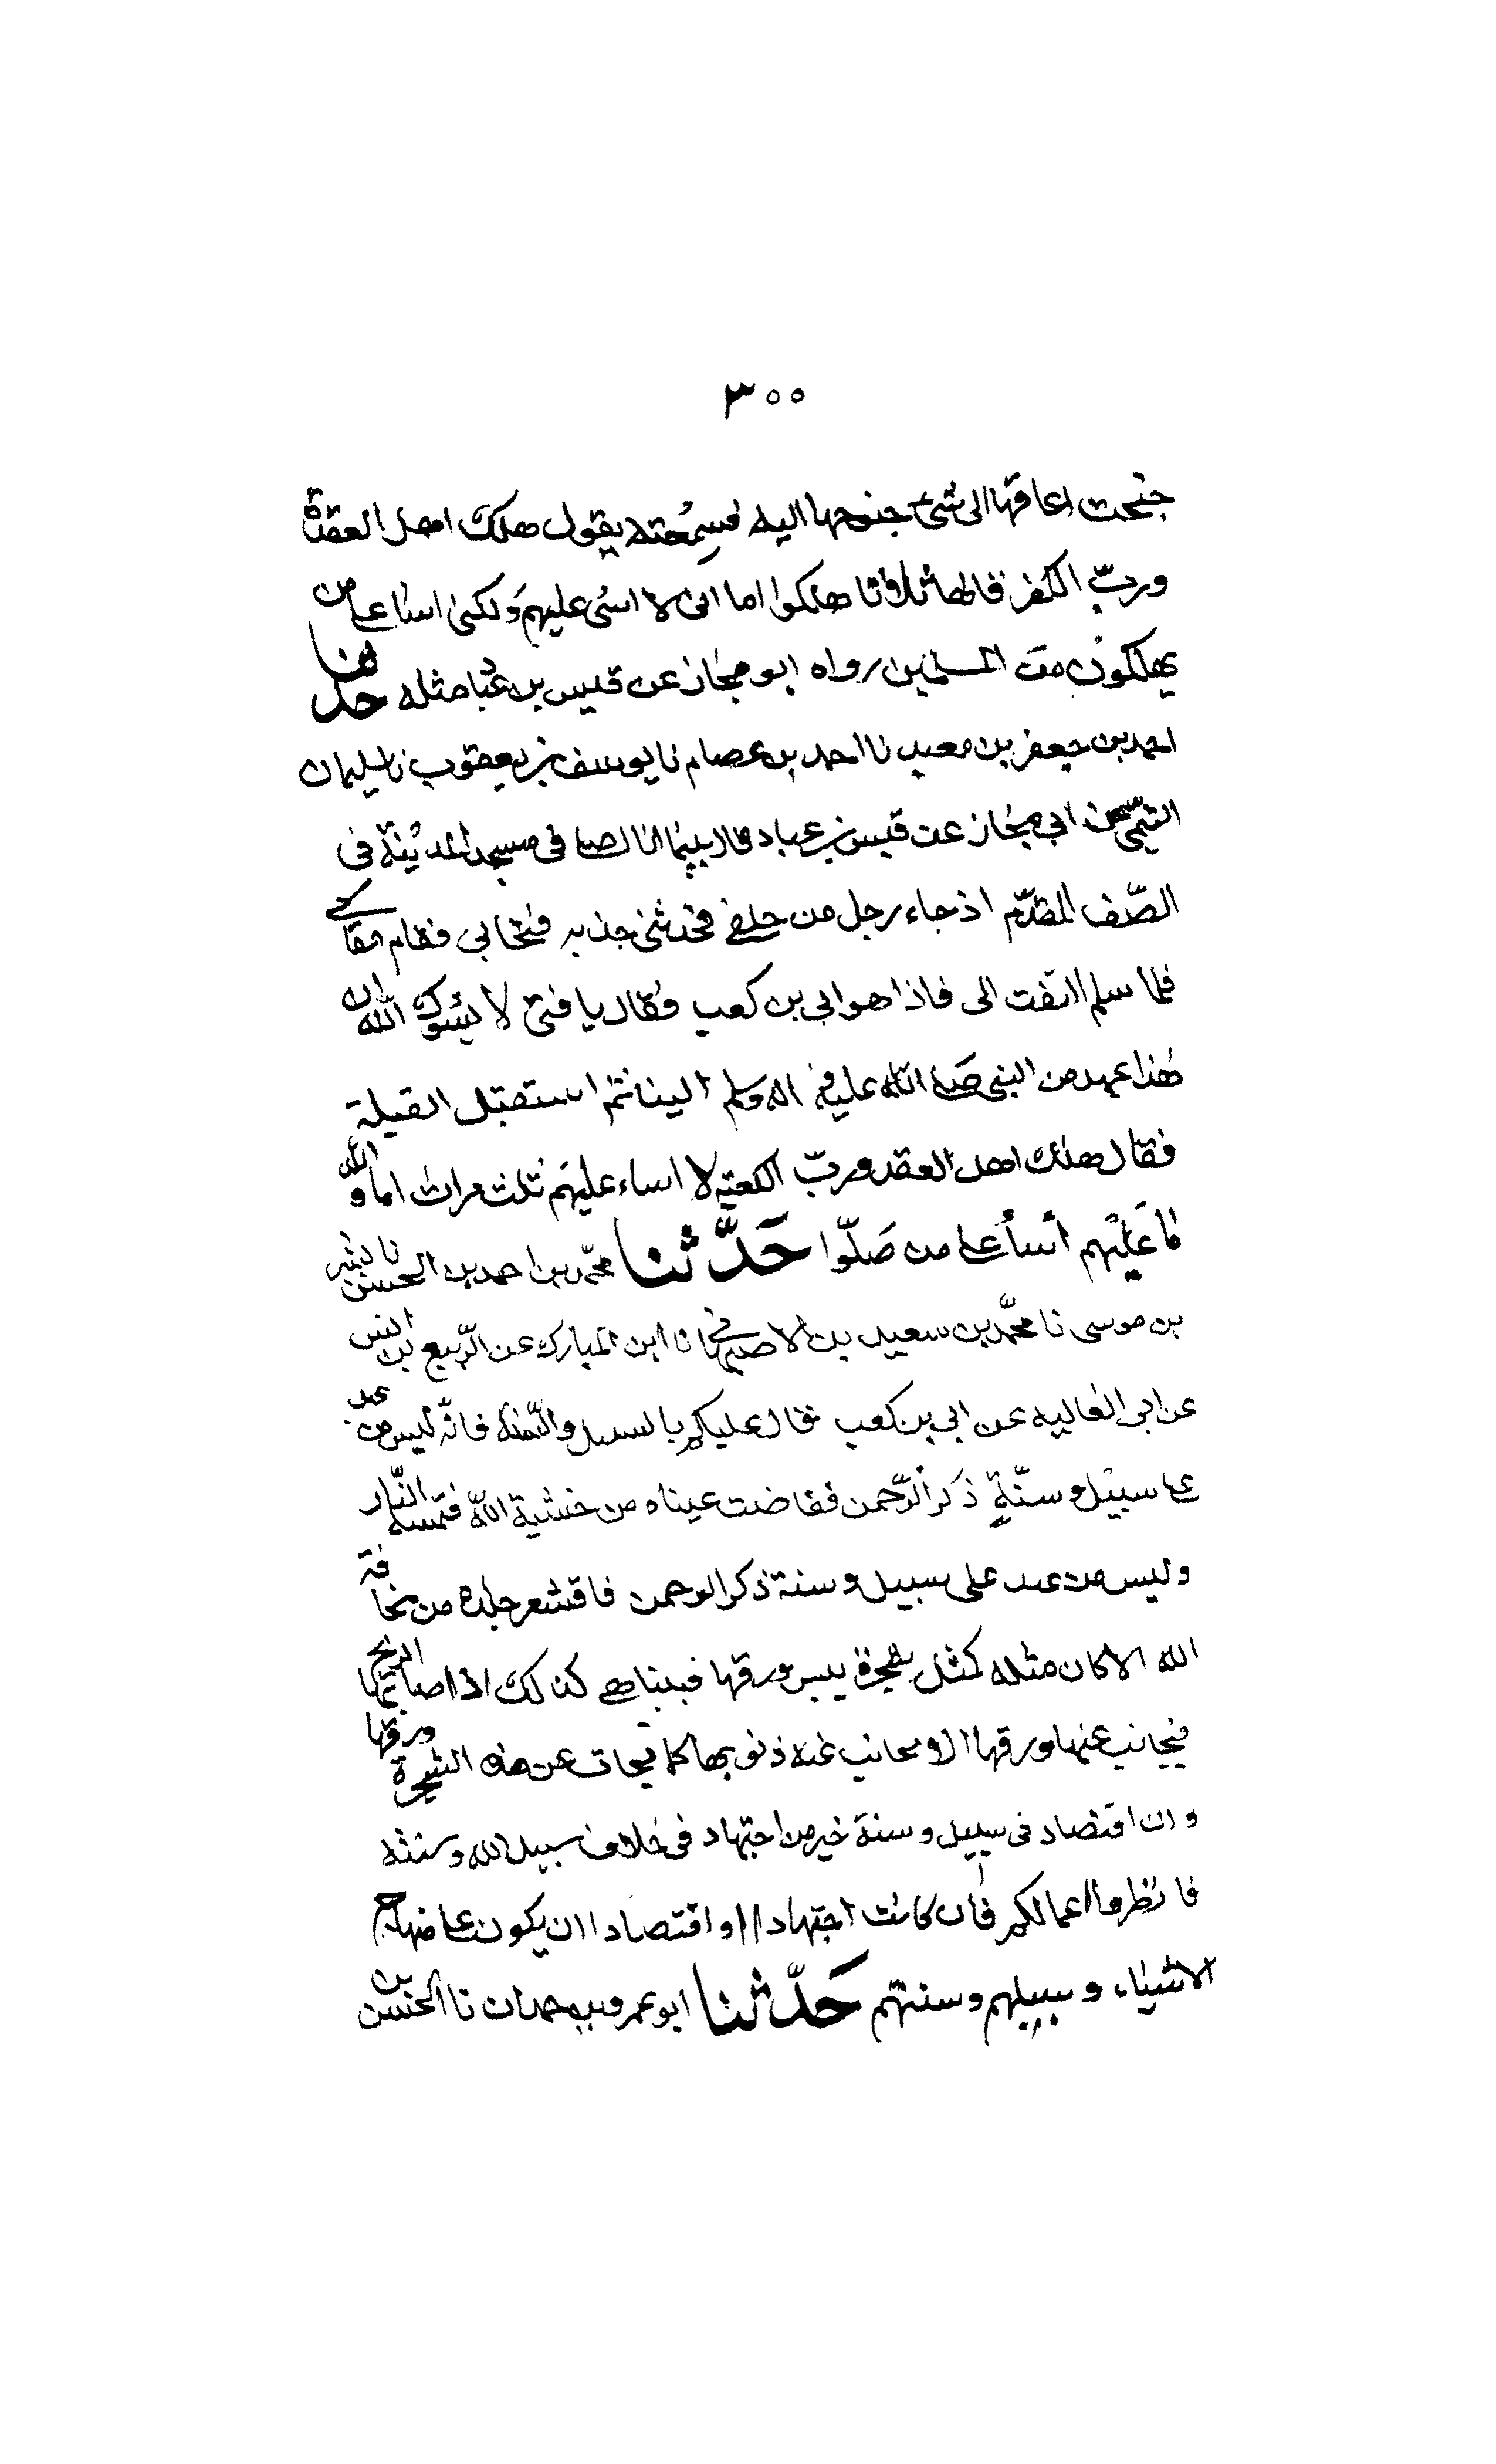 ٣٠٠
جنحت اعاقها الى شئ جنوحها اليه فسمعته يقول هلك اهل العقدة
ورب الكفر قالها ثلاثا هلكوا اما انى لا اسى عليهم ولكنى اسا على من
يهلكون من المسلمين رواه ابو مجاز عن قيس بن عباد مثله حدثنا
احمد بن جعفر بن معبد نا احمد بن عصام نا يوسف بن يعقوب نا سليمان
التيمى عن ابى مجاز عن قيس بن عباد قال بينما انا اصلى فى مسجد المدينة فى
الصّف المقدّم اذ جاء رجل من خلفى فجذبنى جذبه فنحانى فقام مقامى
فلما سلم التفت الى فاذا هو ابى بن كعب فقال يا فتى لا يسوك الله ان
هذا عهد من النبى صلى الله عليه وآله وسلم الينا ثم استقبل القبلة
فقال هلك اهل العقد وربّ الكعبه لا اساء عليهم ثلث مرات اما والله
ما عليهم أسا على من ضلّوا حَدَّثنا محمّد بن احمد بن الحسن نا بشر
بن موسى نا محمّد بن سعيد بن الاصبهانى نا ابن المبارك عن الرّبيع بن انس
عن ابى العاليه عن ابى بن كعب فقال عليكم بالسبيل والسّنة فانّه ليس من عبد
على سبيل وسنّةٍ ذكر الرّحمن ففاضت عيناه من خشية اللّه فتمسه النّار
وليس من عبد على سبيل وسنة ذكر الرحمن فاقشعر جلده من مخافة
الله الا كان مثله كمثل شجرة يبس ورقها فبينا هى كذلك اذا اصابتها الريح
فيجانب عنها ورقها الا وتحاتت عنه ذنوبها كما تحات عن هذه الشجرة ورقها
وان اقتصاد فى سبيل وسنة خير من اجتهاد فى خلاف سبيل الله وسنته
فانظروا اعمالكم فان كانت اجتهادا او اقتصادا ان يكون على منهاج
الانبياء وسبيلهم وسنتهم حَدَّثنا ابو عمرو بن حمدان نا الحسن بن